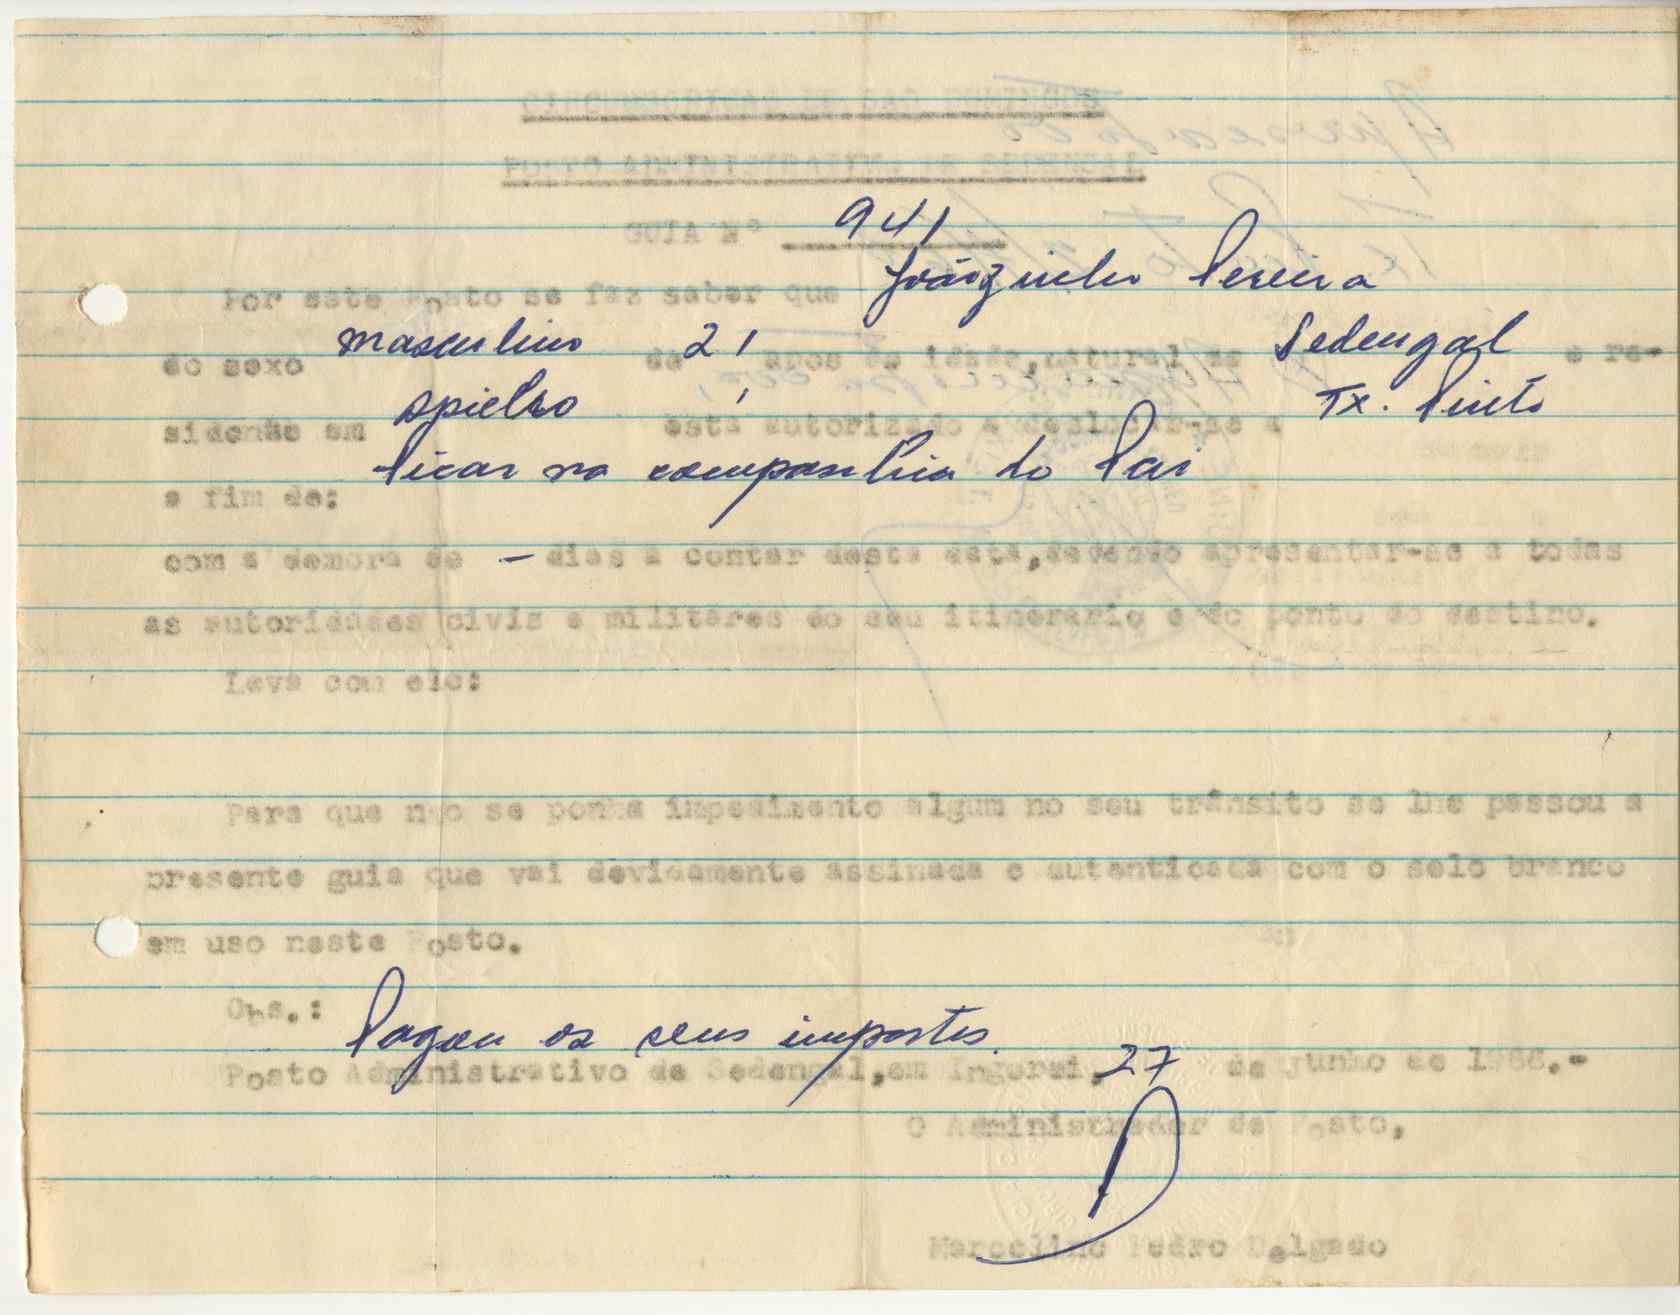 CIRCUNSCRIÇÃO DE SÃO DOMINGOS
POSTO ADMINISTRATIVO DE SEDENGAL
GUIA Nº 941
Por este Posto se faz saber que Joãozinho Pereira
do sexo masculino de 21 anos de idade, natural de Sedengal e re-
sidente em está autorizado a deslocar-se a Tx. Pinto
a fim de: ficar na companhia do Pai
com a demora de - dias a contar desta data, devendo apresentar-se a todas
as autoridades civis e militares do seu itinerario e do ponto do destino.
Leva com ele:
Para que não se ponha impedimento algum no seu trânsito se lhe passou a
presente guia que vai devidamente assinada e autenticada com o selo branco
em uso neste Posto.
Obs.: Pagou os seus impostos.
Posto Administrativo de Sedengal, em Ingorei, 27 de junho de 1966.-
O Administrador de Posto,
Marcelino Pedro Delgado